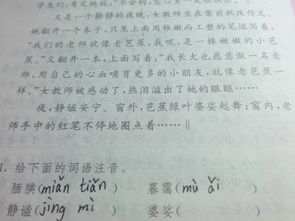 又是一个静静的夜晚，女教师坐在案前批改作文。
她翻开一个本子，只见上面用稚嫩而工整的笔迹写着：
“我们的老师就像老芭蕉，我呢，是一株嫩嫩的小芭
蕉。”又翻开一本，上面写着：“我长大也愿意做一名老
师，用自己的心血哺育更多的小朋友，就像老芭蕉一
样。”女教师被感动了，热泪溢出了她的眼眶……
夜，静谧安宁。窗外，芭蕉绿叶婆娑起舞；窗内，老
师手中的红笔不停地圈点着……‖
1. 给下面的词语注音。
腼腆（miǎn tiǎn） 暮霭（mù ǎi）
静谧（jìng mì） 婆娑（